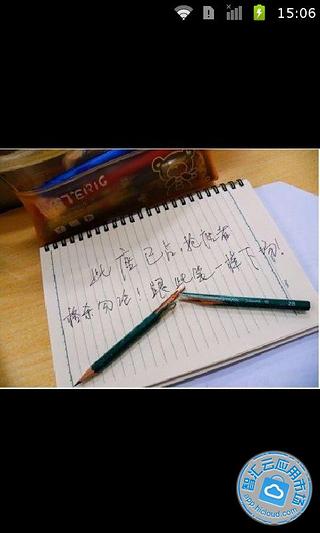 15:06
TERIG
此座已占,抢座者
格杀勿论!跟此笔一样下场!
2B
智汇云应用市场
app.hicloud.com